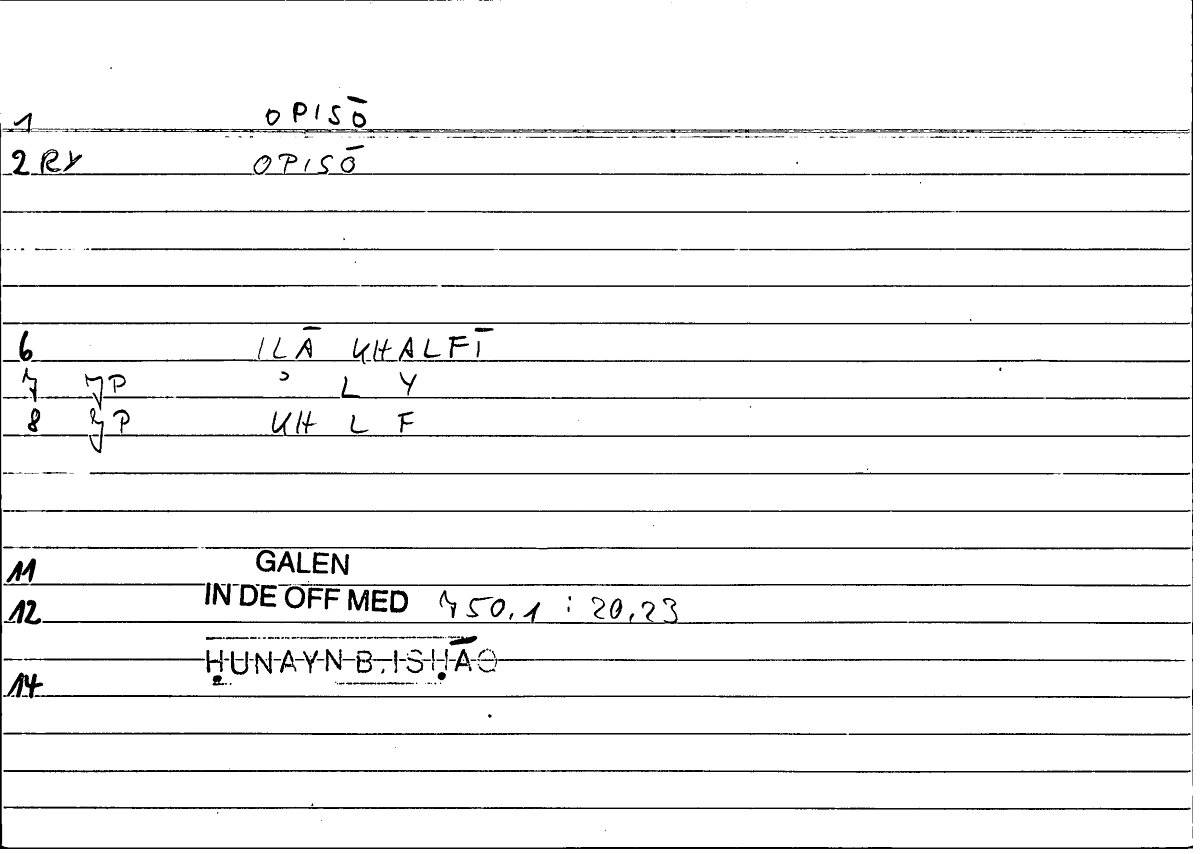 1 OPISŌ
2 RY OPISŌ
6 ILĀ KHALFĪ
7 JP ʾ L Y
8 JP KH L F
11 GALEN
12 IN DE OFF MED 750,1 : 20,23
ḤUNAYN B. ISḤĀQ
14